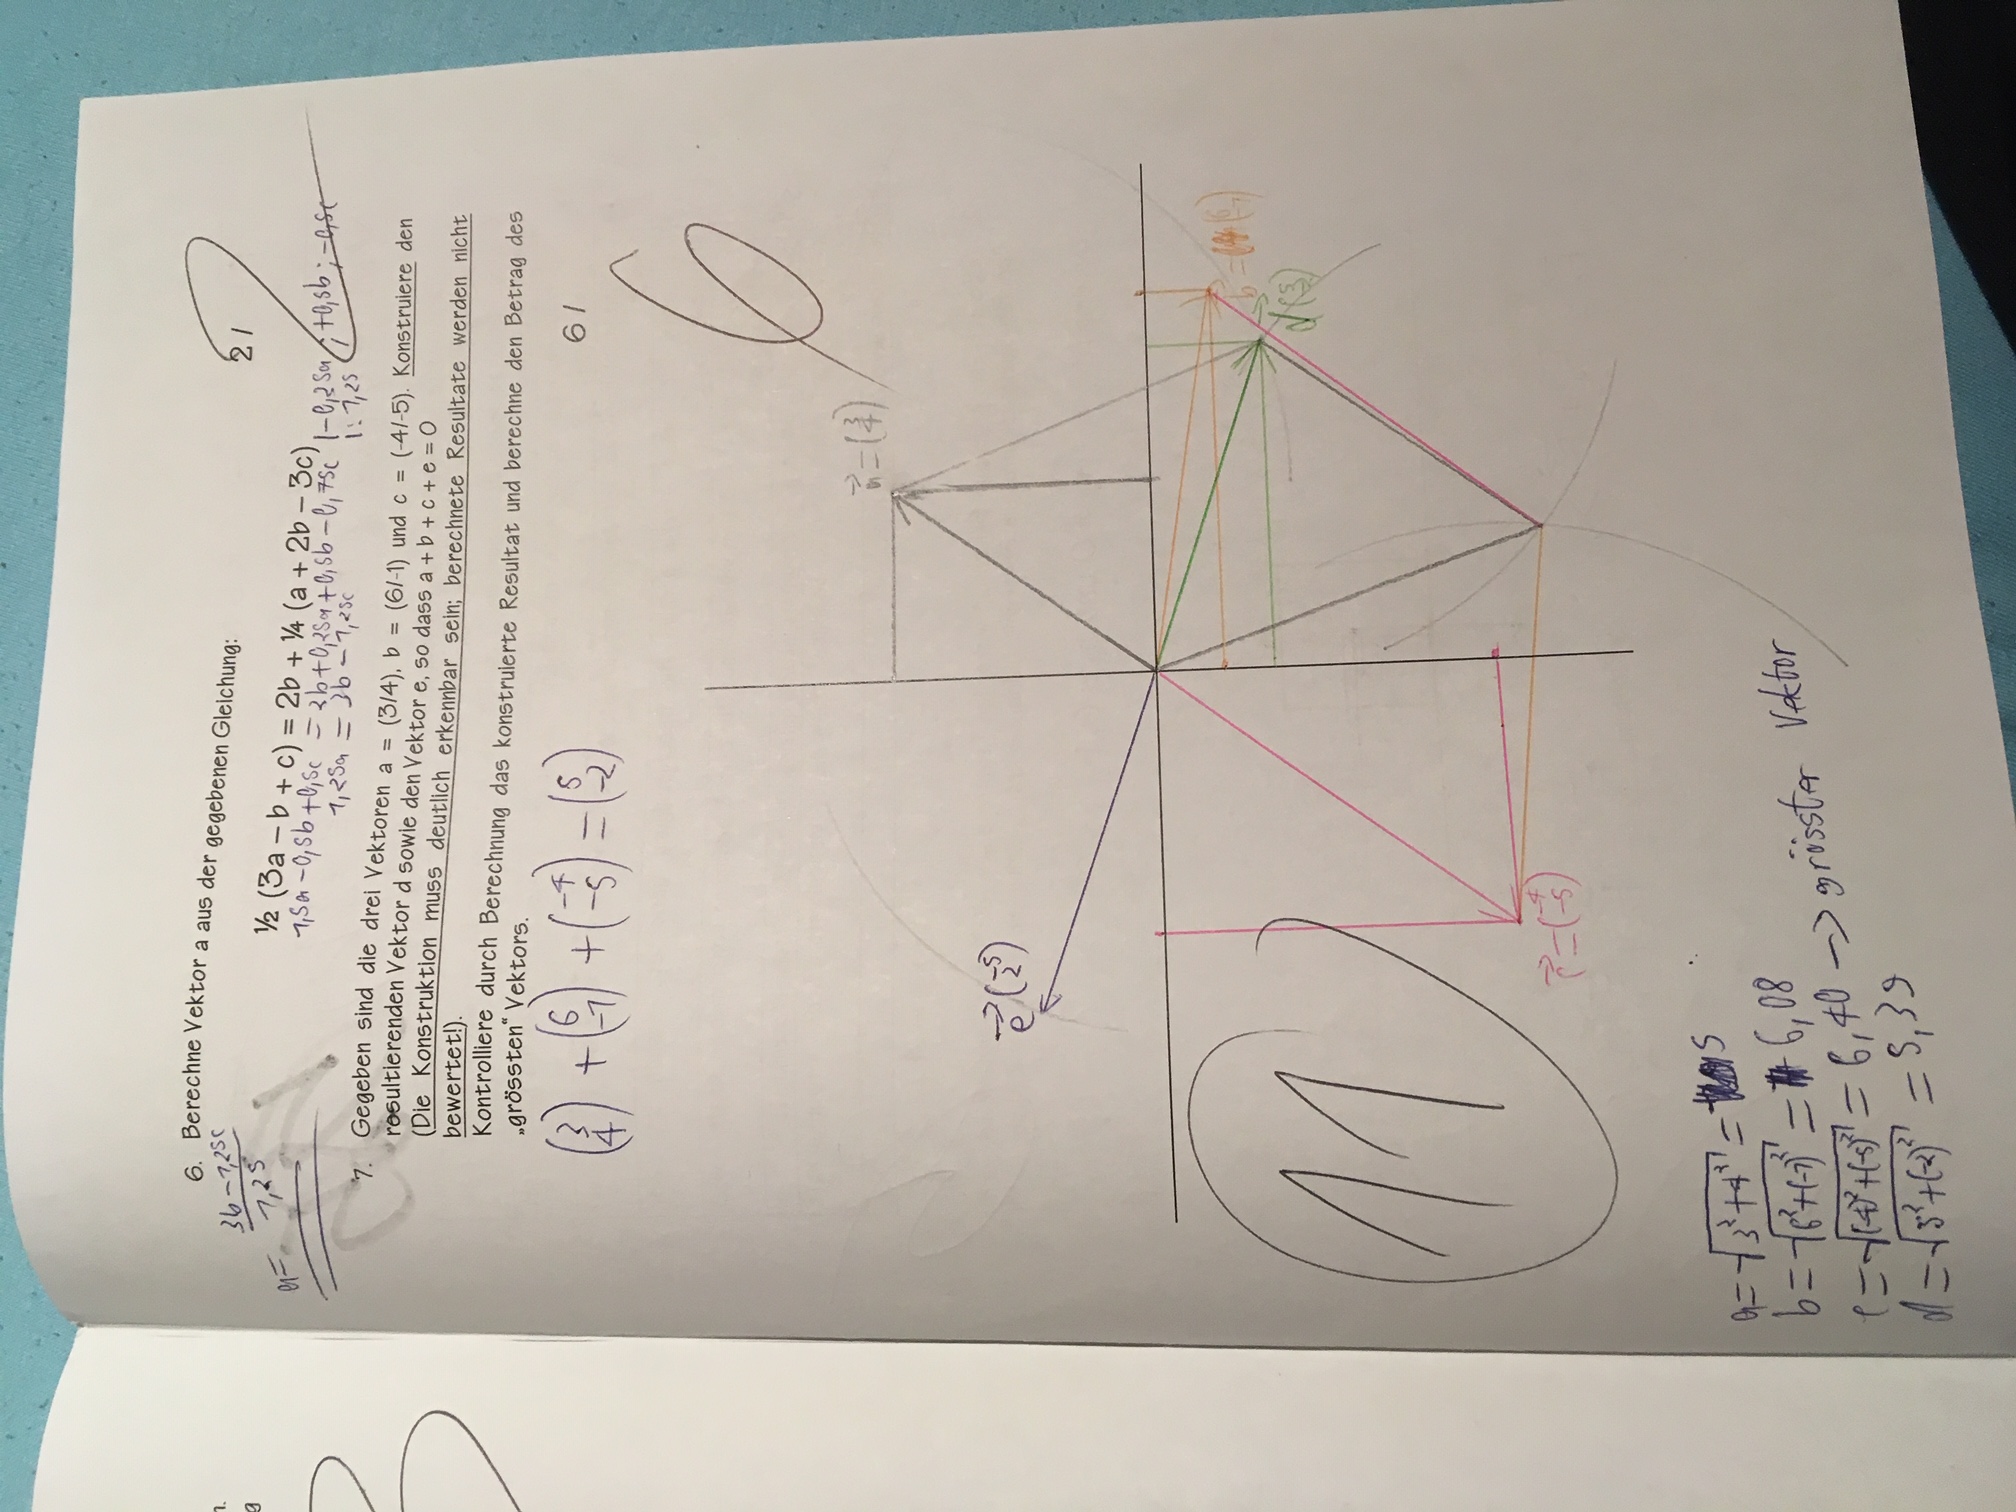 n.
g
6. Berechne Vektor a aus der gegebenen Gleichung:
2/
2
a = (3b - 1,25c) / 1,25
½ (3a – b + c) = 2b + ¼ (a + 2b – 3c)
1,5a - 0,5b + 0,5c = 2b + 0,25a + 0,5b - 0,75c |-0,25a ; +0,5b ; -0,5c
1,25a = 3b - 1,25c |: 1,25
7. Gegeben sind die drei Vektoren a = (3/4), b = (6/-1) und c = (-4/-5). Konstruiere den
resultierenden Vektor d sowie den Vektor e, so dass a + b + c + e = 0
(Die Konstruktion muss deutlich erkennbar sein; berechnete Resultate werden nicht
bewertet!).
Kontrolliere durch Berechnung das konstruierte Resultat und berechne den Betrag des
„grössten“ Vektors.
(3 4) + (6 -1) + (-4 -5) = (5 -2)
6/
6
a = (3 4)
e (-5 2)
b = (6 -1)
d
11
c = (-4 -5)
a = √3² + 4² = 5
b = √6² + (-1)² = 6,08
c = √(-4)² + (-5)² = 6,40 → grösster Vektor
d = √5² + (-2)² = 5,39